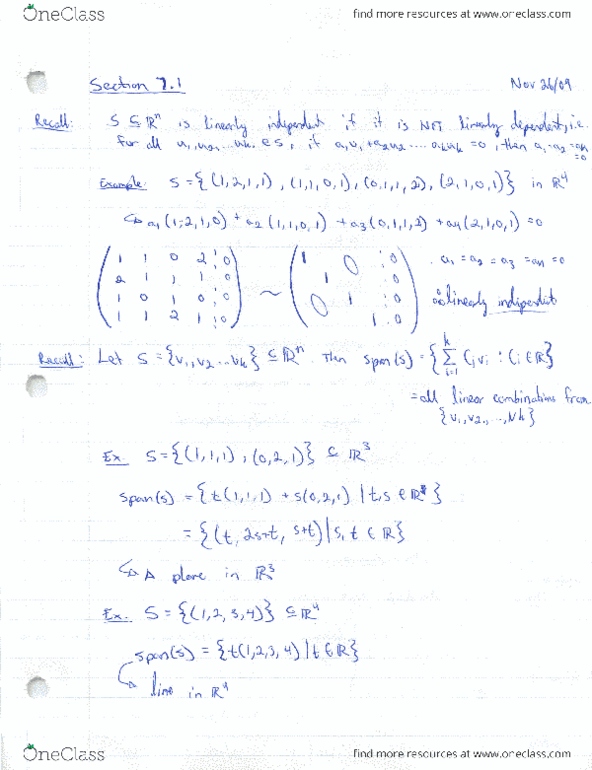 OneClass
find more resources at www.oneclass.com
Section 7.1
Nov 26/09
Recall: S ⊆ ℝⁿ is linearly independent if it is NOT linearly dependent, i.e.
for all u₁, u₂, ... uₖ ∈ S, if a₁u₁ + a₂u₂ ... aₖuₖ = 0, then a₁ = a₂ = aₙ = 0
Example: S = {(1,2,1,1), (1,1,0,1), (0,1,1,2), (2,1,0,1)} in ℝ⁴
a₁(1,2,1,0) + a₂(1,1,0,1) + a₃(0,1,1,2) + a₄(2,1,0,1) = 0
1 1 0 2 : 0   1 0 : 0
2 1 1 1 : 0 ~ 1 : 0
1 0 1 0 : 0   0 1 : 0
1 1 2 1 : 0   1 : 0
a₁ = a₂ = a₃ = a₄ = 0
∴ linearly independent
Recall: Let S = {v₁, v₂ ... vₖ} ⊆ ℝⁿ. Then span(s) = {∑ᵢ₌₁ᵏ Cᵢvᵢ : Cᵢ ∈ ℝ}
= all linear combinations from
{v₁, v₂, ..., vₖ}
Ex. S = {(1,1,1), (0,2,1)} ⊆ ℝ³
span(s) = {t(1,1,1) + s(0,2,1) | t,s ∈ ℝ}
= {(t, 2s+t, s+t) | s,t ∈ ℝ}
A plane in ℝ³
Ex. S = {(1,2,3,4)} ⊆ ℝ⁴
span(s) = {t(1,2,3,4) | t ∈ ℝ}
line in ℝ⁴
OneClass
find more resources at www.oneclass.com